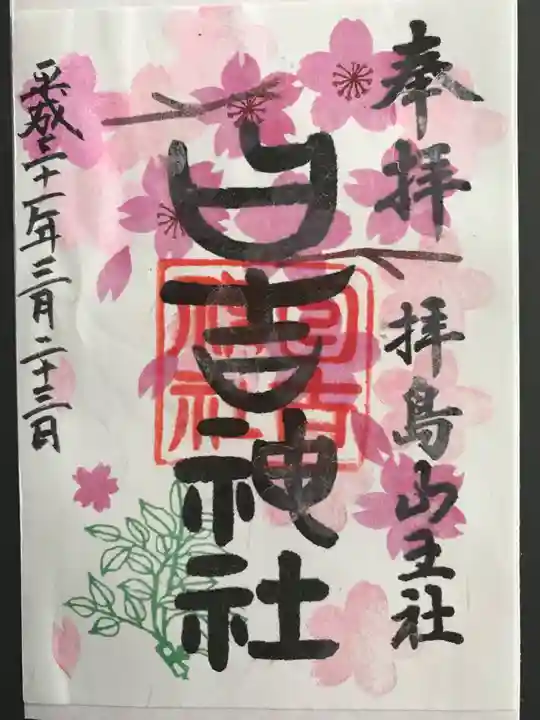 奉拝 拝島山王社
日吉神社
日吉神社
平成三十一年三月二十三日